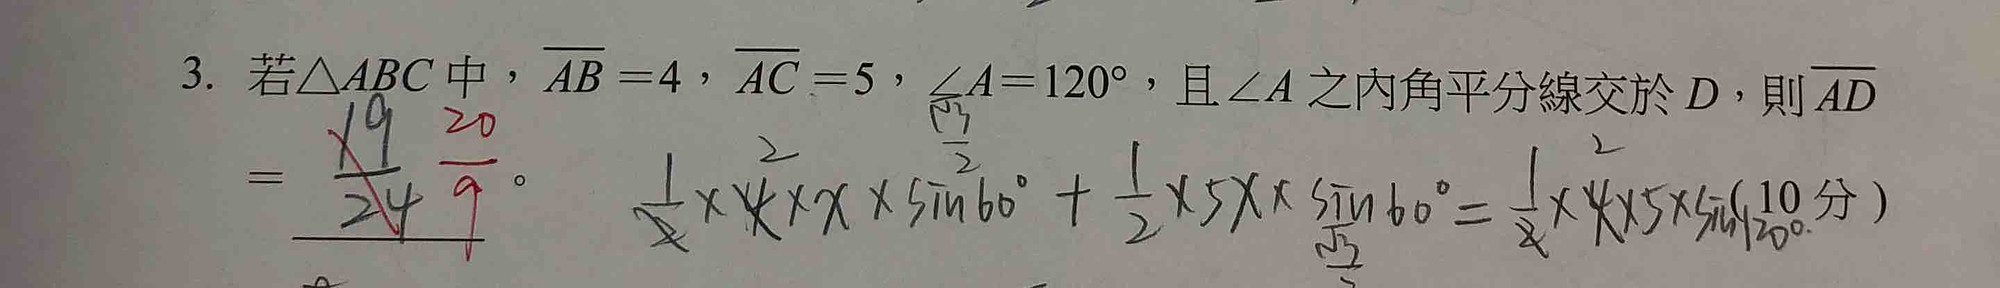 3. 若△ABC中，AB=4，AC=5，∠A=120°，且∠A之內角平分線交於D，則AD
= 19/24 20/9 。 （10分）
√3/2
1/2 × 4 × x × sin60° + 1/2 × 5 x × sin60° = 1/2 × 4 × 5 × sin120°
2 2
√3